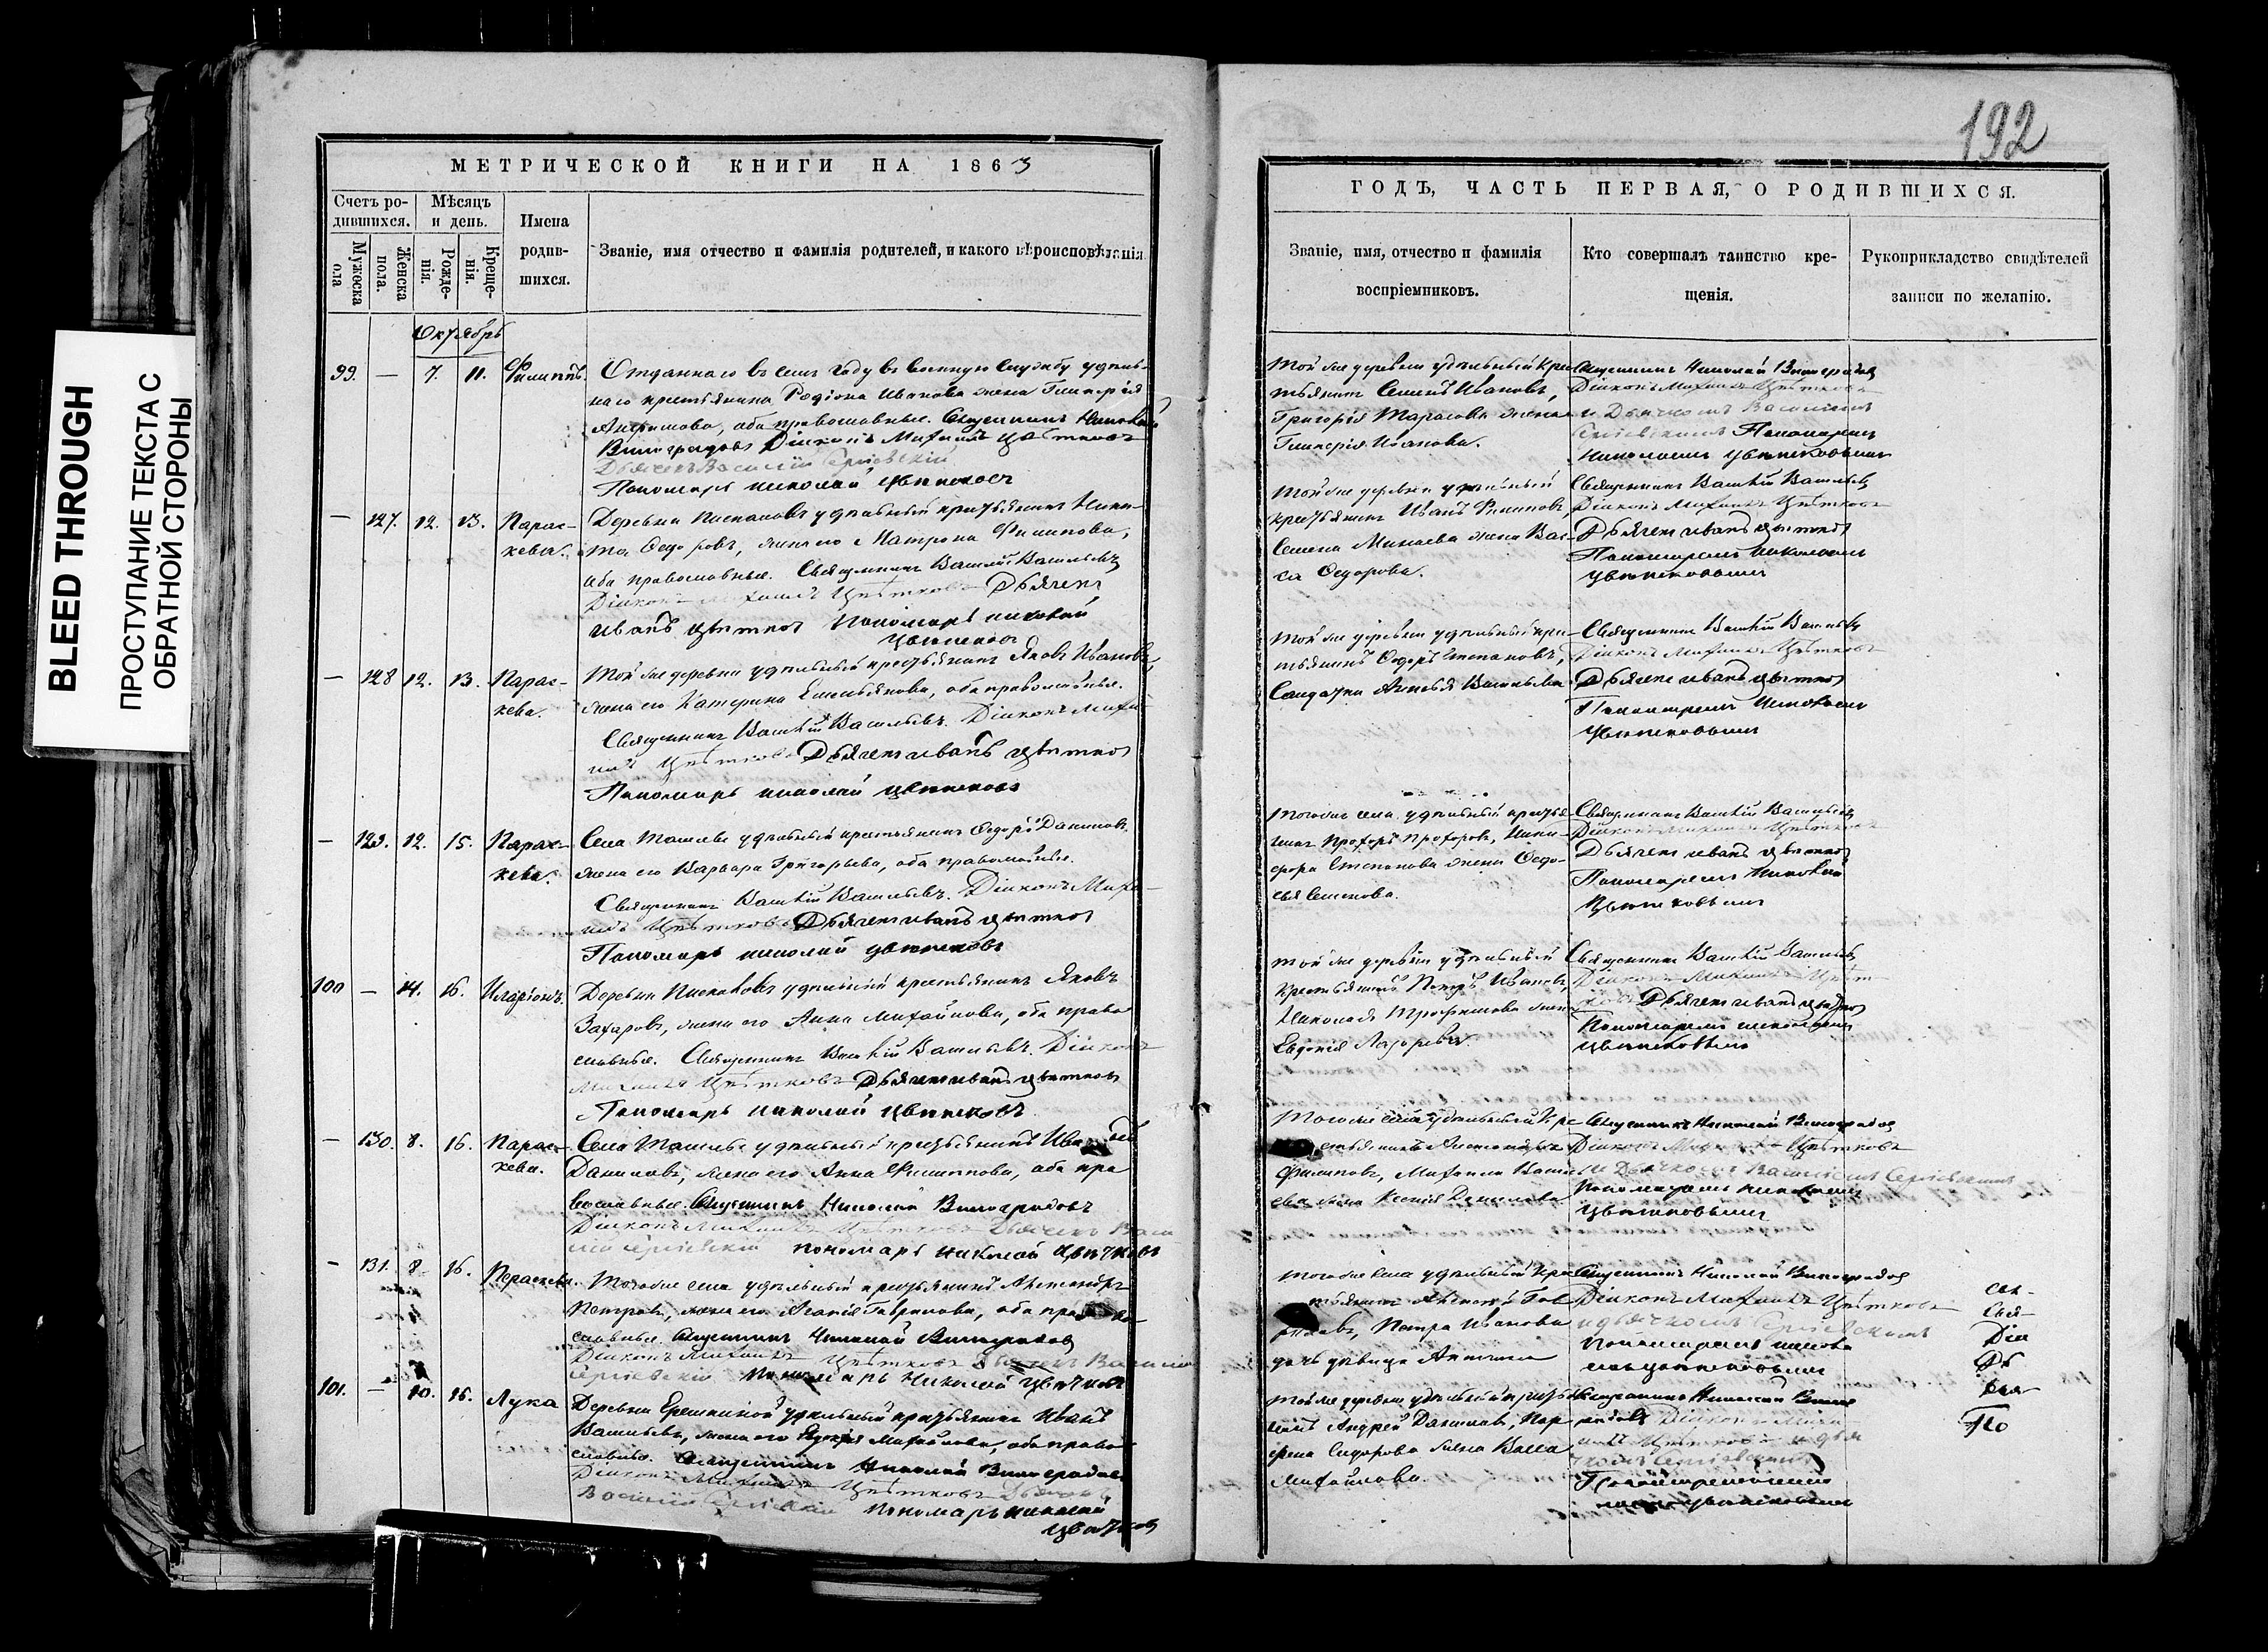 BLEED THROUGH
ПРОСТУПАНИЕ ТЕКСТА С
ОБРАТНОЙ СТОРОНЫ
192
МЕТРИЧЕСКОЙ КНИГИ НА 1863
Счетъ ро-
дившихся.
Мужеска
пола.
Женска
пола.
Мѣсяцъ
и день.
Рожде-
нія.
Креще-
нія.
Имена
родив-
шихся.
Званіе, имя отчество и фамилія родителей, и какого вѣроисповѣданія
Октябрь
99. — 7. 11. Филиппъ.
Отданнаго въ семъ году въ военную службу удѣль-
наго крестьянина Родіона Иванова жена Гликерія
оба православные. Священникъ Николай
Виноградовъ Діаконъ Михаилъ Цвѣтковъ
Дьячекъ Василій Сергіевскій
Пономарь Николай Цвѣтковъ
— 127. 12. 13. Парас-
кева.
Деревни удѣльный крестьянинъ Ники-
та Ѳедоровъ, жена его Матрона Филипова,
оба православные. Священникъ Василій Васильевъ
Діаконъ Михаилъ Цвѣтковъ Дьячекъ
Иванъ Цвѣтков Пономарь Николай
Цвѣтковъ
— 128 12. 13. Парас-
кева.
Той же деревни удѣльный крестьянинъ Яковъ Ивановъ,
жена его Катерина Емельянова, оба православные.
Священникъ Василій Васильевъ. Діаконъ Миха-
илъ Цвѣтковъ Дьячекъ Иванъ Цвѣтков
Пономарь Николай Цвѣтковъ
— 129. 12. 15. Парас-
кева.
Села удѣльный крестьянинъ Ѳедоръ Даниловъ,
жена его Варвара Григорьева, оба православные.
Священникъ Василій Васильевъ. Діаконъ Миха-
илъ Цвѣтковъ Дьячекъ Иванъ Цвѣтков
Пономарь Николай Цвѣтковъ
100 — 14. 16. Иларіонъ.
Деревни удѣльный крестьянинъ Яковъ
Захаровъ, жена его Анна Михайлова, оба право-
славные. Священникъ Василій Васильевъ. Діаконъ
Михаилъ Цвѣтковъ Дьячекъ Иванъ Цвѣтков
Пономарь Николай Цвѣтковъ
— 130. 8. 16. Парас-
кева.
Села удѣльный крестьянинъ
Даниловъ, жена его Анна Филиппова, оба пра
вославные. Священникъ Николай Виноградовъ
Діаконъ Михаилъ Цвѣтковъ Дьячекъ Васи
лій Сергіевскій Пономарь Николай Цвѣтковъ
— 131. 8 16. Параскева.
Того же села удѣльный крестьянинъ Александръ
Петровъ, жена его Агаѳія Гаврилова, оба
славные. Священникъ Николай Виноградов
Діаконъ Михаилъ Цвѣтковъ Дьячекъ Василій
Сергіевскій Пономарь Николай Цвѣтков
101. — 10. 16. Лука
Деревни удѣльный крестьянинъ Иванъ
Васильевъ, жена его Михайлова, оба право-
славные. Священникъ Николай Виноградов
Діаконъ Михаилъ Цвѣтковъ Дьячекъ
Василій Сергіевскій Пономарь Николай
Цвѣтков
ГОДЪ, ЧАСТЬ ПЕРВАЯ, О РОДИВШИХСЯ.
Званіе, имя, отчество и фамилія
воспріемниковъ.
Кто совершалъ таинство кре-
щенія.
Рукоприкладство свидѣтелей
записи по желанію.
Той же деревни удѣльный кре
стьянинъ Семенъ Ивановъ,
Григорія Тарасова жена
Гликерія Иванова.
Священникъ Николай Виноградов
Діаконъ Михаилъ Цвѣтковъ
и Дьячкомъ Василіемъ
Сергіевскимъ Пономаремъ
Николаемъ Цвѣтковымъ
Той же деревни удѣльный
крестьянинъ Иванъ Филиповъ,
Семена Минаева жена Вас-
са Ѳедорова.
Священникъ Василій Васильев
Діаконъ Михаилъ Цвѣтковъ
Дьячекъ Иванъ Цвѣтков
Пономаремъ Николаемъ
Цвѣтковымъ
Той же деревни удѣльный кре-
стьянинъ Ѳедоръ Степановъ,
Васильева
Священникъ Василій Васильев
Діаконъ Михаилъ Цвѣтковъ
Дьячекъ Иванъ Цвѣтков
Пономаремъ Николаемъ
Цвѣтковымъ
Того же села удѣльный крестья
нинъ Прохоръ Прохоровъ, Ники-
фора Степанова жена Ѳедо-
сья Семенова.
Священникъ Василій Васильев
Діаконъ Михаилъ Цвѣтковъ
Дьячекъ Иванъ Цвѣтков
Пономаремъ Николай
Цвѣтковымъ
Той же деревни удѣльный
крестьянинъ Петръ Ивановъ,
Николая Трофимова жена
Евдокія Лазарева.
Священникъ Василій Васильев
Діаконъ Михаилъ Цвѣт
ковъ Дьячекъ Иванъ Цвѣтков
Пономаремъ Николаемъ
Цвѣтковымъ
Того же села удѣльный кре
стьянинъ
Филиповъ, Михаила Василь
ева жена Ксенія Данилова
Священникъ Николай Виноградов
Діаконъ Михаилъ Цвѣтковъ
и Дьячкомъ Василіемъ Сергіевскимъ
Пономаремъ Николаемъ
Цвѣтковымъ
Того же села удѣльный кре
стьянинъ Алексѣй Гав
риловъ, Петра Иванова
дочь дѣвица
Священникъ Николай Виноградов
Діаконъ Михаилъ Цвѣтковъ
и дьячкомъ Сергіевскимъ
Пономаремъ Никола
емъ Цвѣтковымъ
Той же деревни удѣльный крестья
нинъ Андрей Даниловъ, Пар-
фена Сидорова жена Васса
Михайлова.
Священникъ Николай Вино
градовъ Діаконъ Миха
илъ Цвѣтковъ и дья
чкомъ Сергіевскимъ
Свя-
Діа
Дь
По